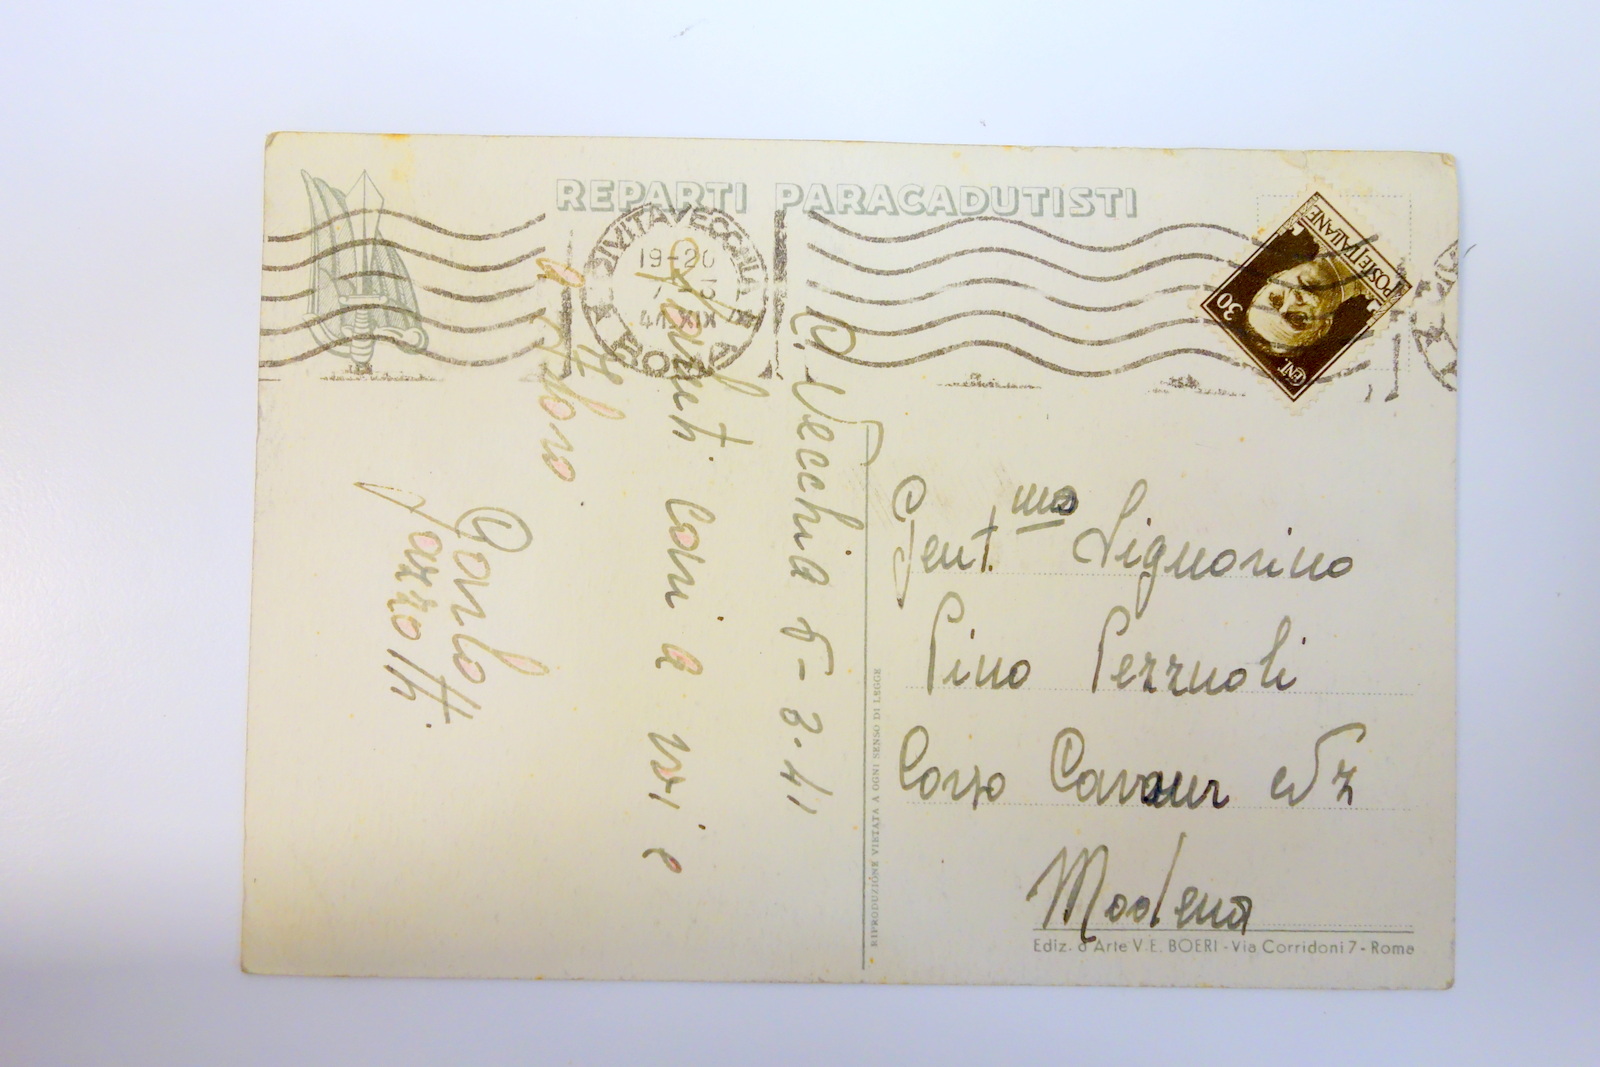 REPARTI PARACADUTISTI
CIVITAVECCHIA
19-20
ROMA
POSTE ITALIANE
30
CENT
C. Vecchia 5-3-41
Saluti cari a voi e
a
Loro
Garlo
Gent.ma Signorina
Pina Pezzuoli
Corso Cavour
Modena
RIPRODUZIONE VIETATA A OGNI SENSO DI LEGGE
Ediz. d'Arte V.E. BOERI - Via Corridoni 7 - Roma